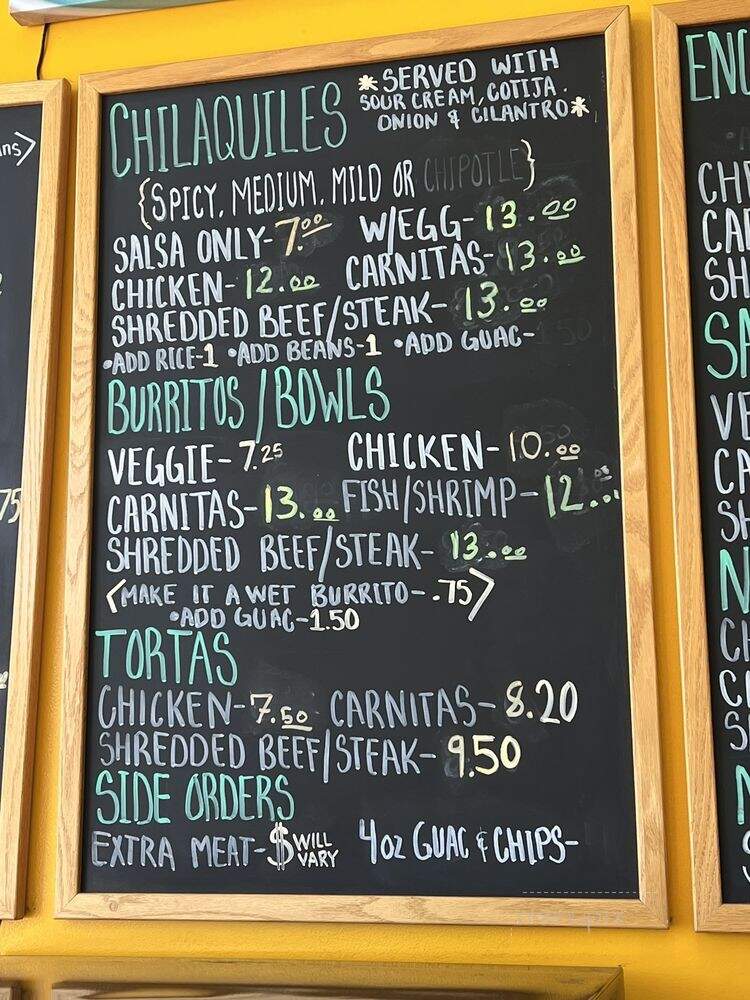 CHILAQUILES
*SERVED WITH
SOUR CREAM, COTIJA.
ONION & CILANTRO*
{SPICY, MEDIUM, MILD OR CHIPOTLE}
SALSA ONLY-7.00 W/EGG-13.00
CHICKEN-12.00 CARNITAS-13.00
SHREDDED BEEF/STEAK-13.00
•ADD RICE-1 •ADD BEANS-1 •ADD GUAC-
BURRITOS/BOWLS
VEGGIE-7.25 CHICKEN-10.00
CARNITAS-13.00 FISH/SHRIMP-12...
SHREDDED BEEF/STEAK-13.00
<MAKE IT A WET BURRITO-.75>
•ADD GUAC-1.50
TORTAS
CHICKEN-7.50 CARNITAS-8.20
SHREDDED BEEF/STEAK-9.50
SIDE ORDERS
EXTRA MEAT-$ WILL VARY 4oz GUAC & CHIPS-
ns>
75
EN
CH
CA
SH
SA
VE
CA
SH
N
CH
CA
S
N
S